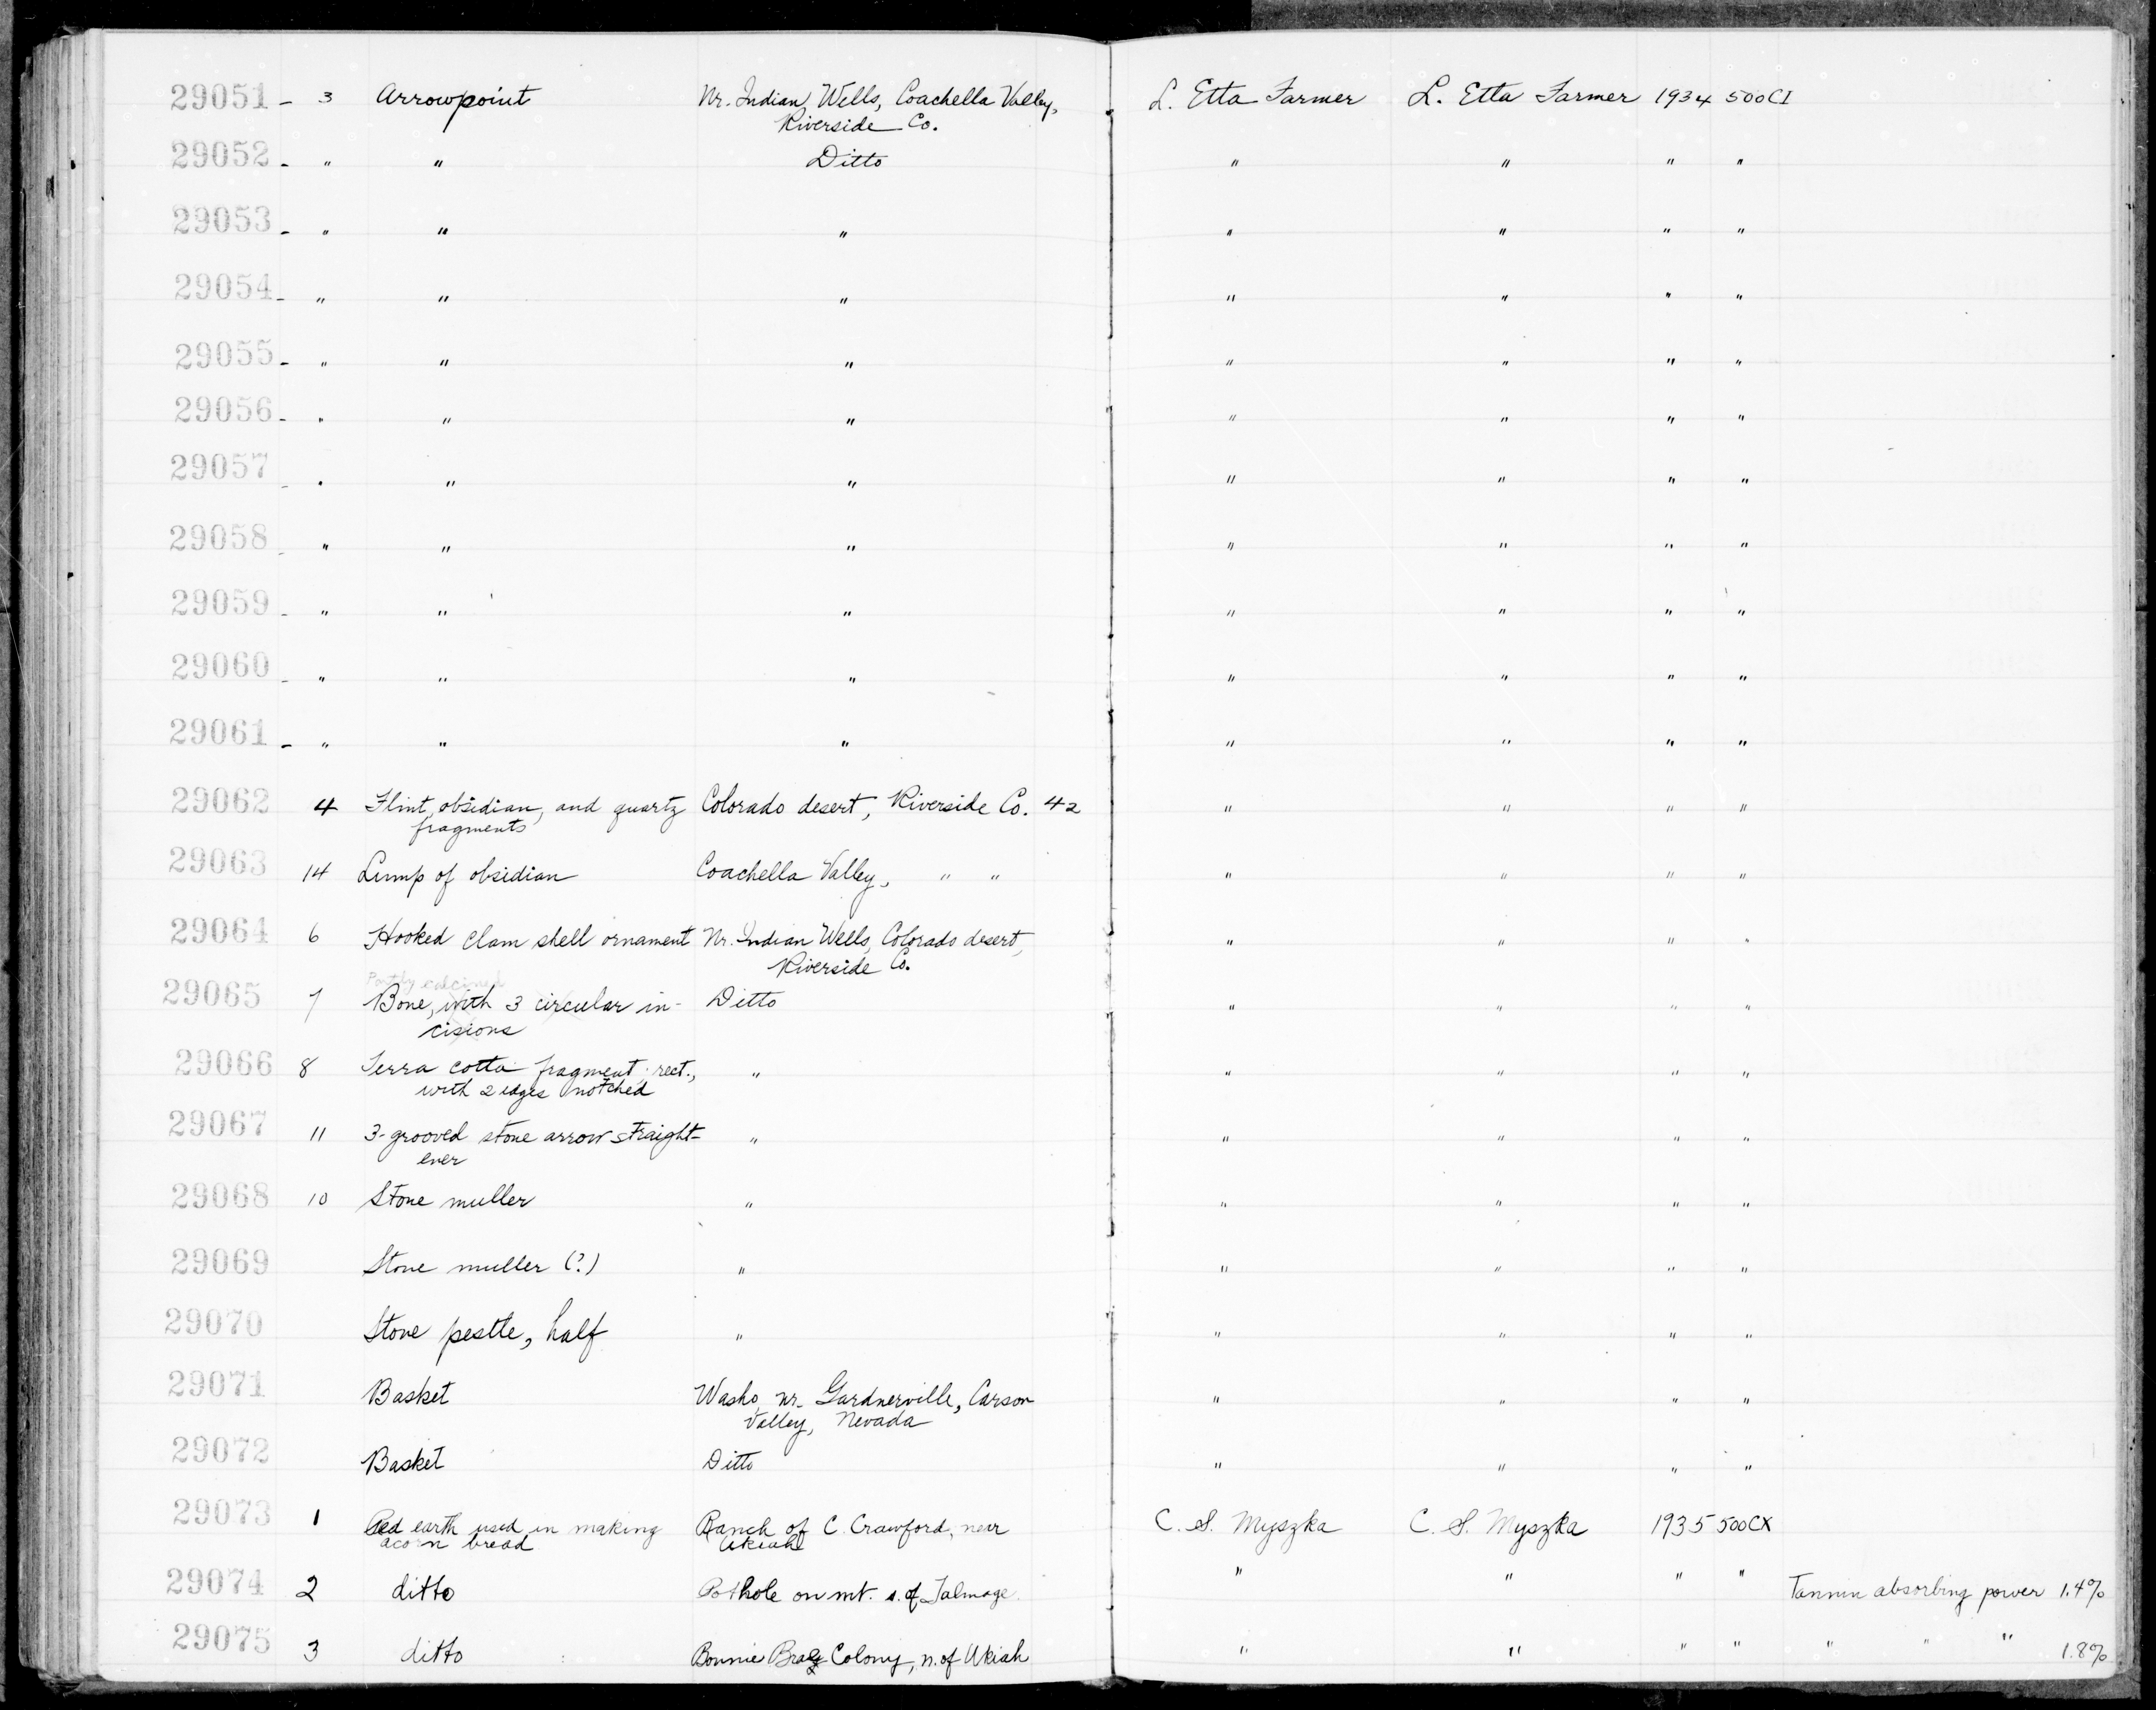 29051 - 3 Arrowpoint Nr. Indian Wells, Coachella Valley, L. Etta Farmer L. Etta Farmer 1934 500CI
Riverside Co.
29052 - " " Ditto " " " "
29053 - " " " " " " "
29054 - " " " " " " "
29055 - " " " " " " "
29056 - " " " " " " "
29057 - " " " " " " "
29058 - " " " " " " "
29059 - " " " " " " "
29060 - " " " " " " "
29061 - " " " " " " "
29062 4 Flint, obsidian, and quartz Colorado desert, Riverside Co. 42 " " " "
fragments
29063 14 Lump of obsidian Coachella Valley, " " " " " "
29064 6 Hooked clam shell ornament Nr. Indian Wells, Colorado desert, " " " "
Riverside Co.
Partly calcined
29065 7 Bone, with 3 circular in- Ditto " " " "
cisions
29066 8 Terra cotta fragment, rect., " " " " "
with 2 edges notched
29067 11 3-grooved stone arrow straight- " " " " "
ener
29068 10 Stone muller " " " " "
29069 Stone muller (?) " " " " "
29070 Stone pestle, half " " " " "
29071 Basket Washo, nr. Gardnerville, Carson " " " "
Valley, Nevada
29072 Basket Ditto " " " "
29073 1 Red earth used in making Ranch of C. Crawford, near C. S. Myszka C. S. Myszka 1935 500CX
acorn bread Ukiah
29074 2 ditto Pothole on mt. s. of Talmage " " " " Tannin absorbing power 1.4%
29075 3 ditto Bonnie Brae Colony, n. of Ukiah " " " " " " " 1.8%